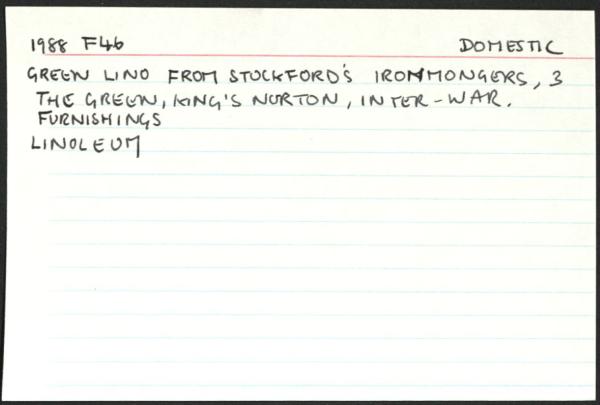 1988 F46 DOMESTIC
GREEN LINO FROM STOCKFORD'S IRONMONGERS, 3
THE GREEN, KING'S NORTON, INTER-WAR.
FURNISHINGS
LINOLEUM